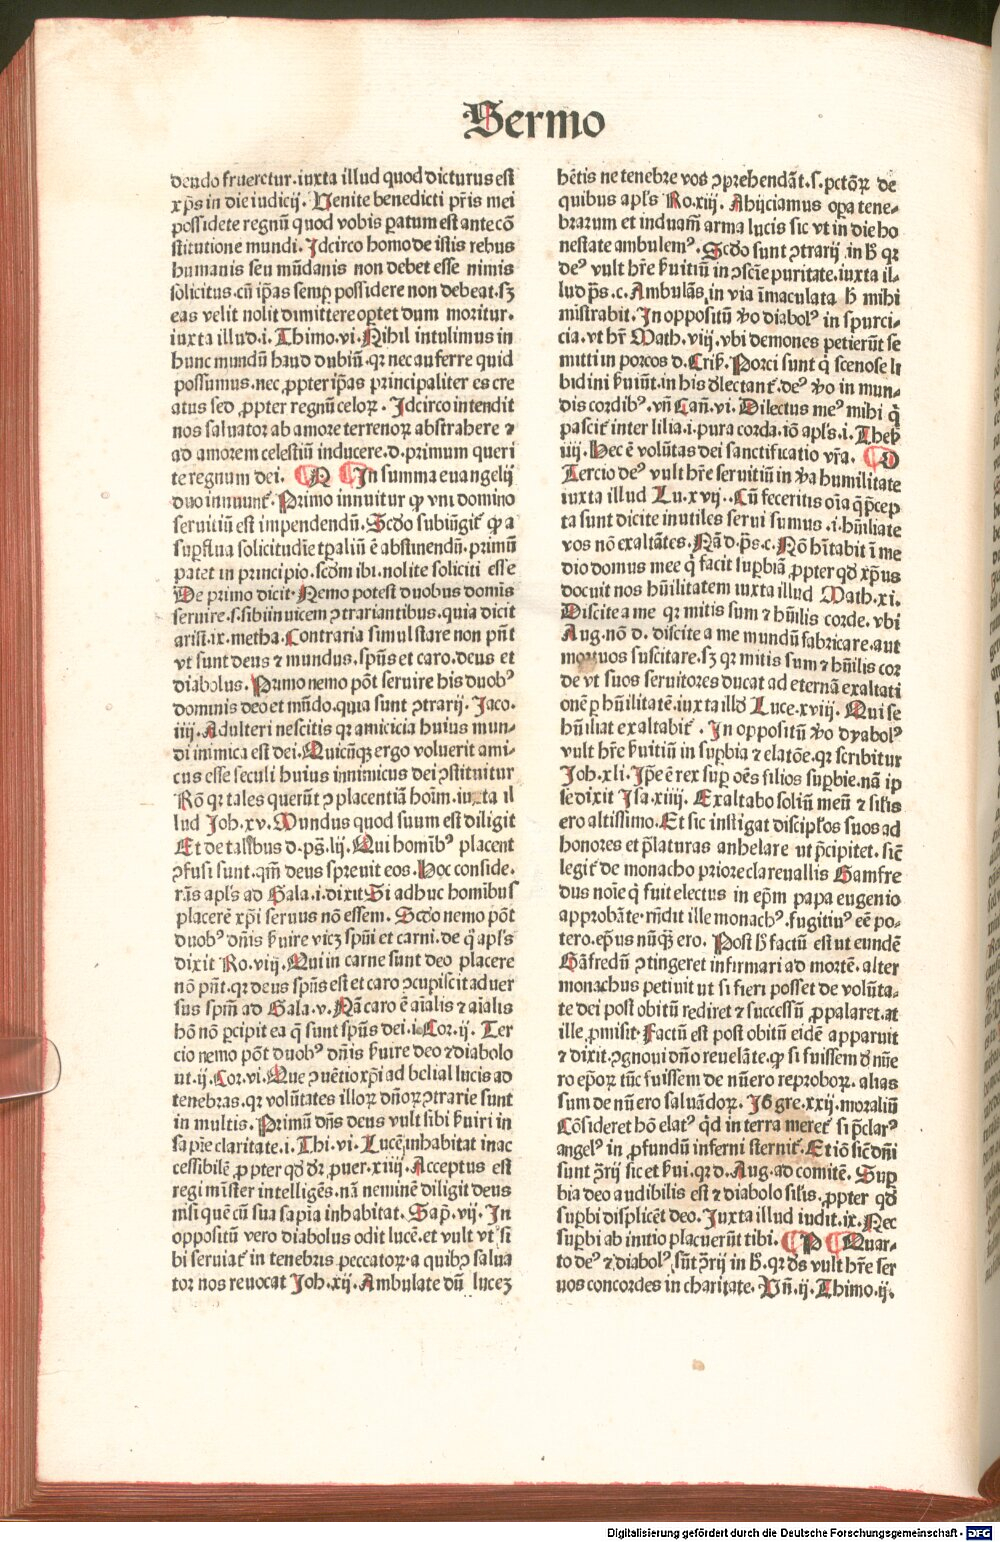 Sermo
dendo frueretur. iuxta illud quod dicturus est
xp̄s in die iudicij. Uenite benedicti pr̄is mei
possidete regnū quod vobis ꝑatum est ante cō
stitutione mundi. Idcirco homo de istis rebus
humanis seu mūdanis non debet esse nimis
solicitus. cū ip̄as semꝑ possidere non debeat. sꝫ
eas velit nolit dimittere oꝑtet dum moritur.
iuxta illud .i. Thimo. vi. Nihil intulimus in
hunc mundū haud dubiū. qr nec auferre quid
possumus. nec ꝓpter ip̄as principaliter es cre
atus sed ꝓpter regnū celoꝝ. Idcirco intendit
nos saluator ab amore terrenoꝝ abstrahere ⁊
ad amorem celestiū inducere. d. primum queri
te regnum dei. N In summa euangelij
duo innuunt᷑. Primo innuitur ꝙ vni domino
seruitiū est impendendū. Scd̄o subiūgit᷑ ꝙ a
suꝑflua solicitudīe tꝑaliū ē abstinendū. primū
patet in principio. scd̄m ibi. nolite soliciti esse
De primo dicit. Nemo potest duobus domīs
seruire. s. sibiinuicem ꝯtrariantibus. quia dicit
arist. ix. metha. Contraria simul stare non pn̄t
vt sunt deus ⁊ mundus. spūs et caro. deus et
diabolus. Primo nemo pōt seruire his duobꝰ
dominis deo et mūdo. quia sunt ꝯtrarij. Jaco.
iiij. Adulteri nescitis qr amicicia huius mun-
di inimica est dei. Quicūqꝫ ergo voluerit ami-
cus esse seculi huius innimicus dei ꝯstituitur
Rō qr tales querūt ꝯplacentiā hoīm. iuxta il
lud Joh. xv. Mundus quod suum est diligit
Et de talibus d. pš. lij. Qui homībꝰ placent
ꝯfusi sunt. qm̄ deus spreuit eos. Hoc conside.
rās apl's ad Gala. i. dixit Si adhuc homībus
placerē xp̄i seruus nō essem. Scd̄o nemo pōt
duobꝰ dn̄is ẜuire vicꝫ spūi et carni. de q̄ apl's
dixit Ro. viij. Qui in carne sunt deo placere
nō pn̄t. qr deus spūs est et caro ꝯcupiscit aduer
sus spm̄ ad Gala. v. Nā caro ē aīalis ⁊ aīalis
hō nō ꝑcipit ea q̄ sunt spūs dei. i. Cor. ij. Ter
cio nemo pōt duobꝰ dn̄is ẜuire deo ⁊ diabolo
ut .ij. Cor. vi. Que ꝯuētio xp̄i ad belial lucis ad
tenebras. qr volūtates illoꝝ dn̄oꝝ ꝯtrarie sunt
in multis. Primū dn̄s deus vult sibi ẜuiri in
sapīe claritate. i. Thi. vi. Lucē inhabitat inac
cessibilē ꝓpter qd̄ dr̄ ꝓuer. xiiij. Acceptus est
regi mīster intelligēs. nā neminē diligit deus
nisi quē cū sua sapīa inhabitat. Sap̄. vij. In
oppositū vero diabolus odit lucē. et vult vt si
bi seruiat᷑ in tenebris peccatoꝝ. a quibꝰ salua
tor nos reuocat Joh. xij. Ambulate dū luceꝫ
hētis ne tenebre vos ꝯprehendāt. s. pctōꝝ de
quibus apl's Ro. xiij. Abijciamus oꝑa tene-
brarum et induam̄ arma lucis sic vt in die ho
nestate ambulemꝰ. Scd̄o sunt ꝯtrarij in ẜ qr
deꝰ vult hr̄e ẜuitiū in ꝯsciē puritate. iuxta il-
lud ps̄. c. Ambulās in via īmaculata ẜ mihi
mīstrabit. In oppositū v̄o diabolꝰ in spurci-
cia. vt hr̄ Math. viij. vbi demones petierūt se
mitti in porcos d. Criẜ. Porci sunt q̄ scenose li
bidini ẜuiūt. in his delectant᷑. deꝰ v̄o in mun-
dis cordibꝰ. vn̄ Can̄. vi. Dilectus meꝰ mihi q̄
pascit᷑ inter lilia. i. pura corda. iō apl's. i. Theẜ
iiij. Hec ē volūtas dei sanctificatio vr̄a. O
Tercio deꝰ vult hr̄e seruitiū in v̄a humilitate
iuxta illud Lu. xvij. Cū feceritis oīa q̄ p̄cep
ta sunt dicite inutiles serui sumus. i. hūiliate
vos nō exaltātes. Nā d. ps̄. c. Nō hītabit ī me
dio domus mee q̄ facit suꝑbiā ꝓpter qd̄ xp̄us
docuit nos hūilitatem iuxta illud Math. xi.
Discite a me qr mitis sum ⁊ hūilis corde. vbi
Aug. nō d. discite a me mundū fabricare. aut
mortuos suscitare. sꝫ qr mitis sum ⁊ hūilis cor
de vt suos seruitores ducat ad eternā exaltati
onē ꝑ hūilitatē. iuxta illd̄ Luce. xviij. Qui se
hūiliat exaltabit᷑. In oppositū v̄o dyabolꝰ
vult hr̄e ẜuitiū in suꝑbia ⁊ elatōe. qr scribitur
Joh. xli. Ip̄e ē rex suꝑ oēs filios suꝑbie. nā ip
se dixit Isa. xiiij. Exaltabo soliū meū ⁊ sil'is
ero altissimo. Et sic instigat discipl'os suos ad
honores et p̄laturas anhelare ut p̄cipitet. sic̄
legit᷑ de monacho priore clareuallis Gamfre
dus noīe q̄ fuit electus in ep̄m papa eugenio
approbāte. rn̄dit ille monachꝰ. fugitiuꝰ eē po-
tero. ep̄us nūqꝫ ero. Post ẜ factū est ut eundē
Gāfredū ꝯtingeret infirmari ad mortē. alter
monachus petiuit ut si fieri posset de volūta-
te dei post obitū rediret ⁊ successū ꝓpalaret. at
ille ꝓmisit. Factū est post obitū eidē apparuit
⁊ dixit. ꝯgnoui dn̄o reuelāte. ꝙ si fuissem d̄ nūe
ro ep̄oꝝ tūc fuissem de nūero reproboꝝ. alias
sum de nūero saluādoꝝ. Iō gre. xxij. moraliū
Cōsideret hō elatꝰ q̄d in terra meret᷑ si p̄clarꝰ
angelꝰ in ꝓfundū inferni sternit᷑. Et iō sic̄ dn̄i
sunt ꝯrij sic et ẜui. qr d. Aug. ad comitē. Suꝑ
bia deo audibilis est ⁊ diabolo sil'is. ꝓpter qd̄
suꝑbi displicēt deo. Iuxta illud iudit. ix. Nec
suꝑbi ab initio placuerūt tibi. P Quar-
to deꝰ ⁊ diabolꝰ sūt ꝯrij in ẜ. qr dēs vult hr̄e ser
uos concordes in charitate. Vn̄. ij. Thimo. ij.
Digitalisierung gefördert durch die Deutsche Forschungsgemeinschaft - DFG